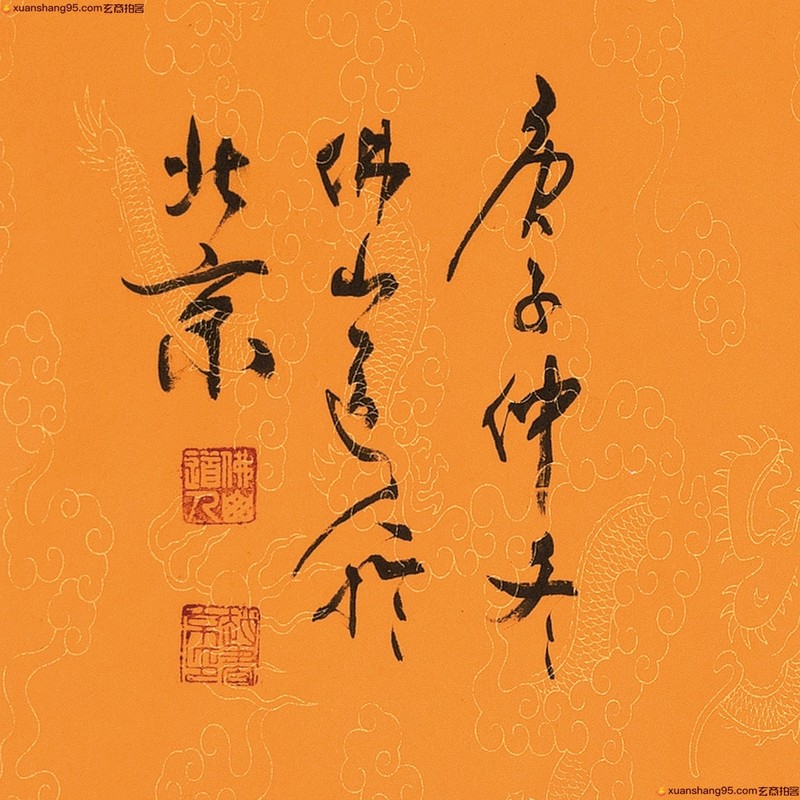 xuanshang95.com玄商拍客
庚子仲冬
佛山道人於
北京
佛山道人
xuanshang95.com玄商拍客